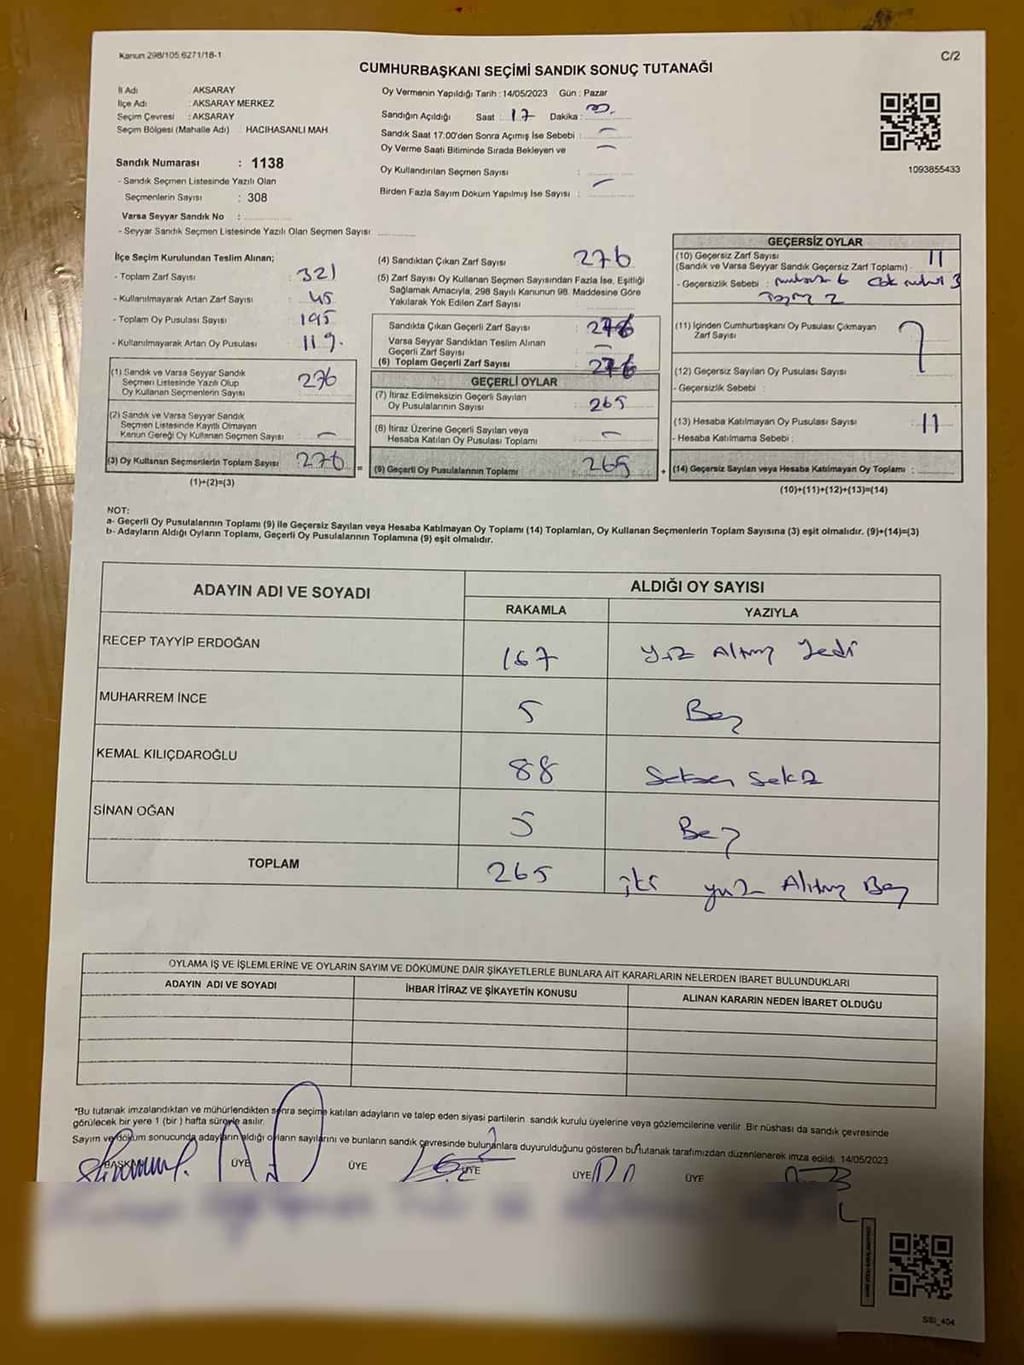 Kanun 298/105 6271/18-1
C/2
CUMHURBAŞKANI SEÇİMİ SANDIK SONUÇ TUTANAĞI
İl Adı : AKSARAY
İlçe Adı : AKSARAY MERKEZ
Seçim Çevresi : AKSARAY
Seçim Bölgesi (Mahalle Adı) : HACIHASANLI MAH
Sandık Numarası : 1138
- Sandık Seçmen Listesinde Yazılı Olan
Seçmenlerin Sayısı : 308
Varsa Seyyar Sandık No :
- Seyyar Sandık Seçmen Listesinde Yazılı Olan Seçmen Sayısı:
Oy Vermenin Yapıldığı Tarih : 14/05/2023 Gün : Pazar
Sandığın Açıldığı Saat : 17 Dakika :
Sandık Saat 17:00'den Sonra Açımış İse Sebebi :
Oy Verme Saati Bitiminde Sırada Bekleyen ve
Oy Kullandırılan Seçmen Sayısı :
Birden Fazla Sayım Döküm Yapılmış İse Sayısı :
1093855433
İlçe Seçim Kurulundan Teslim Alınan;
- Toplam Zarf Sayısı : 321
- Kullanılmayarak Artan Zarf Sayısı : 45
- Toplam Oy Pusulası Sayısı : 195
- Kullanılmayarak Artan Oy Pusulası : 119.
(1) Sandık ve Varsa Seyyar Sandık
Seçmen Listesinde Yazılı Olup
Oy Kullanan Seçmenlerin Sayısı : 276
(2) Sandık ve Varsa Seyyar Sandık
Seçmen Listesinde Kayıtlı Olmayan
Kanun Gereği Oy Kullanan Seçmen Sayısı :
(3) Oy Kullanan Seçmenlerin Toplam Sayısı : 276
(1)+(2)=(3)
=
(4) Sandıktan Çıkan Zarf Sayısı : 276
(5) Zarf Sayısı Oy Kullanan Seçmen Sayısından Fazla İse, Eşitliği
Sağlamak Amacıyla, 298 Sayılı Kanunun 98. Maddesine Göre
Yakılarak Yok Edilen Zarf Sayısı :
Sandıkta Çıkan Geçerli Zarf Sayısı : 276
Varsa Seyyar Sandıktan Teslim Alınan
Geçerli Zarf Sayısı :
(6) Toplam Geçerli Zarf Sayısı : 276
GEÇERLİ OYLAR
(7) İtiraz Edilmeksizin Geçerli Sayılan
Oy Pusulalarının Sayısı : 265
(8) İtiraz Üzerine Geçerli Sayılan veya
Hesaba Katılan Oy Pusulası Toplamı :
(9) Geçerli Oy Pusulalarının Toplamı : 265
+
GEÇERSİZ OYLAR
(10) Geçersiz Zarf Sayısı
(Sandık ve Varsa Seyyar Sandık Geçersiz Zarf Toplamı) : 11
- Geçersizlik Sebebi : 6 3
2
(11) İçinden Cumhurbaşkanı Oy Pusulası Çıkmayan
Zarf Sayısı :
(12) Geçersiz Sayılan Oy Pusulası Sayısı :
- Geçersizlik Sebebi :
(13) Hesaba Katılmayan Oy Pusulası Sayısı : 11
- Hesaba Katılmama Sebebi :
(14) Geçersiz Sayılan veya Hesaba Katılmayan Oy Toplamı :
(10)+(11)+(12)+(13)=(14)
NOT:
a- Geçerli Oy Pusulalarının Toplamı (9) ile Geçersiz Sayılan veya Hesaba Katılmayan Oy Toplamı (14) Toplamları, Oy Kullanan Seçmenlerin Toplam Sayısına (3) eşit olmalıdır. (9)+(14)=(3)
b- Adayların Aldığı Oyların Toplamı, Geçerli Oy Pusulalarının Toplamına (9) eşit olmalıdır.
ADAYIN ADI VE SOYADI
ALDIĞI OY SAYISI
RAKAMLA YAZIYLA
RECEP TAYYİP ERDOĞAN 167 yüz Altmış Yedi
MUHARREM İNCE 5 Beş
KEMAL KILIÇDAROĞLU 88 Seksen Sekiz
SİNAN OĞAN 5 Beş
TOPLAM 265 iki yüz Altmış Beş
OYLAMA İŞ VE İŞLEMLERİNE VE OYLARIN SAYIM VE DÖKÜMÜNE DAİR ŞİKAYETLERLE BUNLARA AİT KARARLARIN NELERDEN İBARET BULUNDUKLARI
ADAYIN ADI VE SOYADI İHBAR İTİRAZ VE ŞİKAYETİN KONUSU ALINAN KARARIN NEDEN İBARET OLDUĞU
*Bu tutanak imzalandıktan ve mühürlendikten sonra seçime katılan adayların ve talep eden siyasi partilerin sandık kurulu üyelerine veya gözlemcilerine verilir. Bir nüshası da sandık çevresinde
görülecek bir yere 1 (bir ) hafta süreyle asılır.
Sayım ve döküm sonucunda adayların aldığı oyların sayılarını ve bunların sandık çevresinde bulunanlara duyurulduğunu gösteren bu tutanak tarafımızdan düzenlenerek imza edildi. 14/05/2023
BAŞKAN ÜYE ÜYE ÜYE ÜYE ÜYE
SSI_404